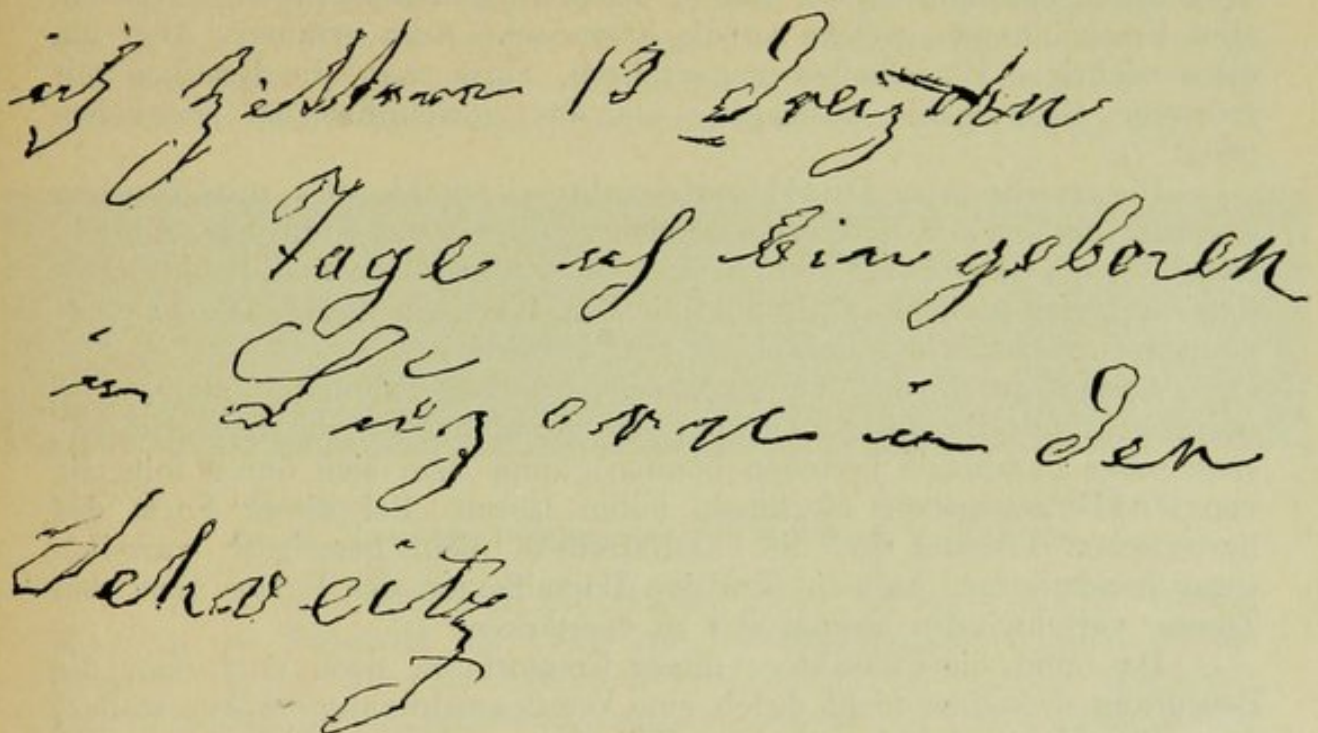 ich zittere 13 Dreizehn
Tage ich bin geboren
in Luzern in der
Schweitz